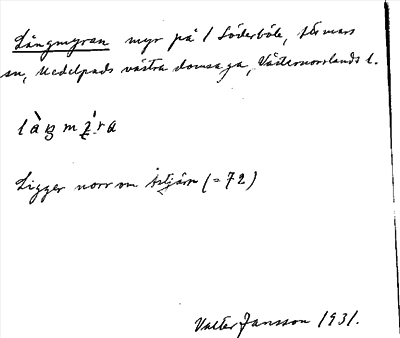 Långmyran myr på 1 Söderböle, Stönars
sn, Medelpads västra domsaga, Västernorrlands l.
Ligger norr om Åstjärn (=72)
Valter Jansson 1931.